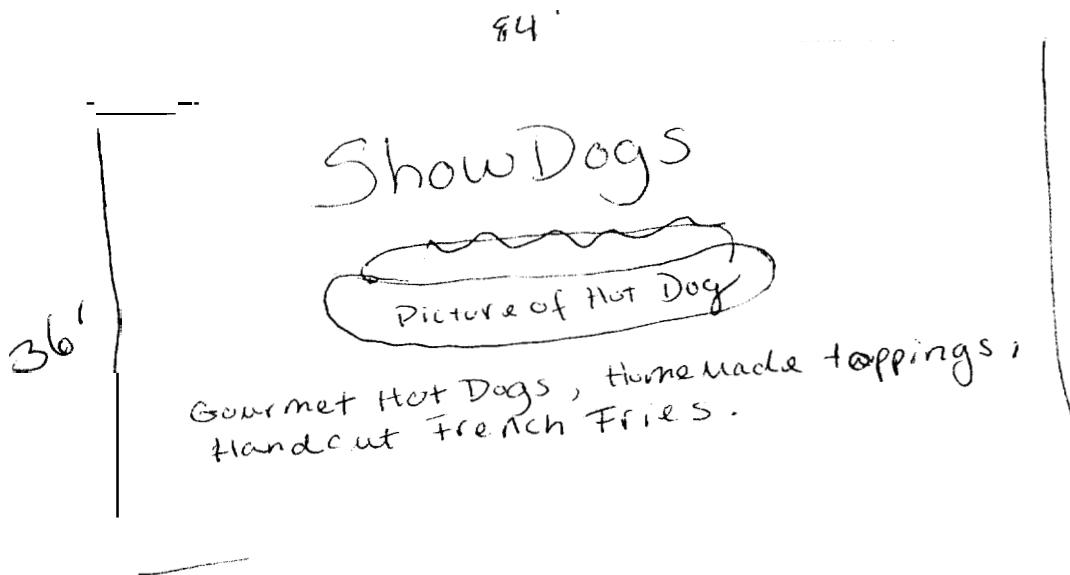 84'
ShowDogs
Picture of Hot Dog
36'
Gourmet Hot Dogs, Homemade toppings,
Handcut French Fries.